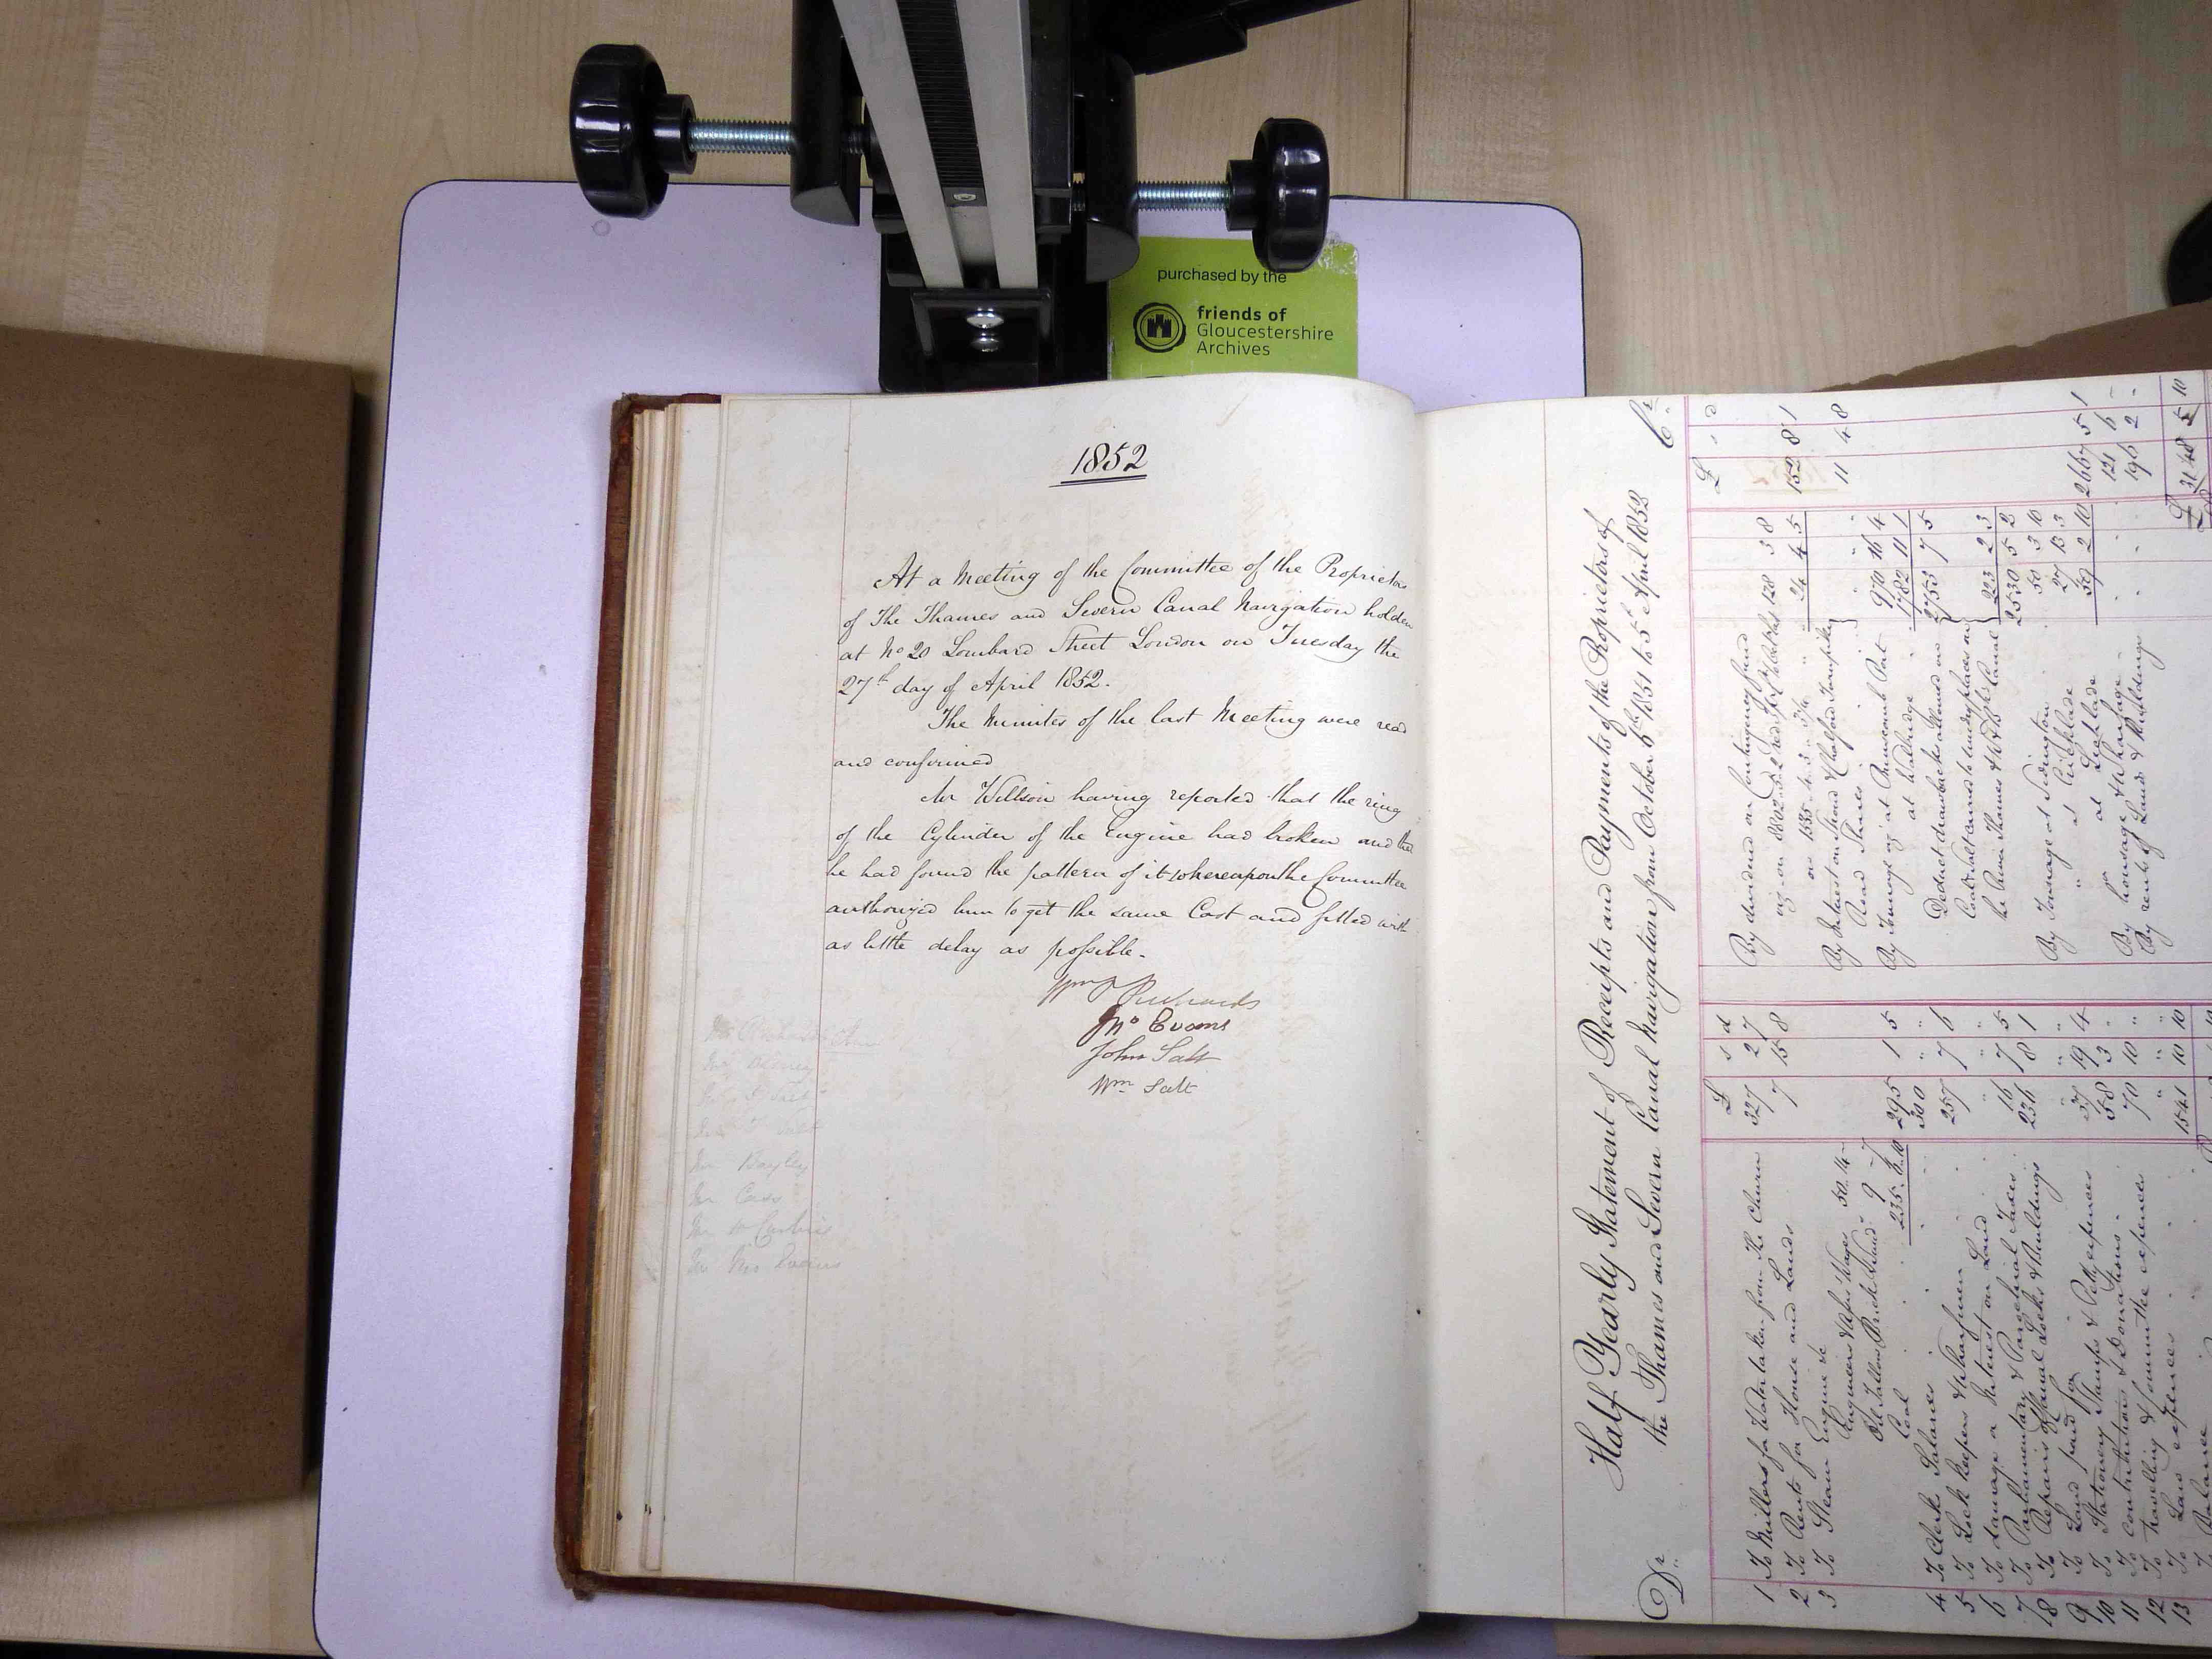 purchased by the
friends of
Gloucestershire
Archives
1852
At a Meeting of the Committee of the Proprietors
of The Thames and Severn Canal Navigation holden
at No 20 Lombard Street London on Tuesday the
27th day of April 1852.
The Minutes of the last Meeting were read
and confirmed
Mr Willson having reported that the ring
of the Cylinder of the Engine had broken and that
he had found the pattern of it whereupon the Committee
authorized him to get the same Cast and fitted with
as little delay as possible.
Wm Richards
Jno Evans
John Salt
Wm Salt
Mr Bayley
Mr Cass
Half Yearly Statement of Receipts and Payments of the Proprietors of
the Thames and Severn Canal Navigation from October 6th 1851 to 5th April 1852
Dr
Cr
£ s d
1 To Millers for Water taken from the Churn 327 2 7
2 To Rents for House and Lands 7 15 8
3 To Steam Engine viz
Engineers Wages 50.14
Coal 235.6.10 295 1 5
4 To Clerks Salaries 300 " "
5 To Lock keepers & Wharfmen 257 7 6
6 To damage & Interest on Land " " "
7 To Parliamentary & Parochial Taxes 16 7 5
8 To Repairs of Canal Locks & Buildings 236 8 1
9 To Land paid for " " "
10 To Stationery Stamps & Petty expences 37 19 4
11 To Contributions & Donations 58 3 "
12 To travelling & Committee expences 70 10 "
13 To Law expences " " "
1541 10 10
To Balance
£
By dividend on Contingency fund
128 3 8
24 4 5 152 8 1
By Interest on Stroud & Chalford Turnpike
Road Shares 11 4 8
By Tonnage viz at Brimscomb Port 970 16 4
at Wallbridge 1782 11 1
2753 7 5
Deduct drawbacks allowed on
Coal & Salt carried to sundry places on
the River Thames & Wilts & Berks Canal 223 2 3
2530 5 2
By Tonnage at Siddington 50 3 10
" at Cricklade 27 13 3
" at Lechlade 59 2 10 2667 5 1
By housage & Wharfage 121 6 -
By rents of Lands & Buildings 196 2 -
£ 3148 5 10